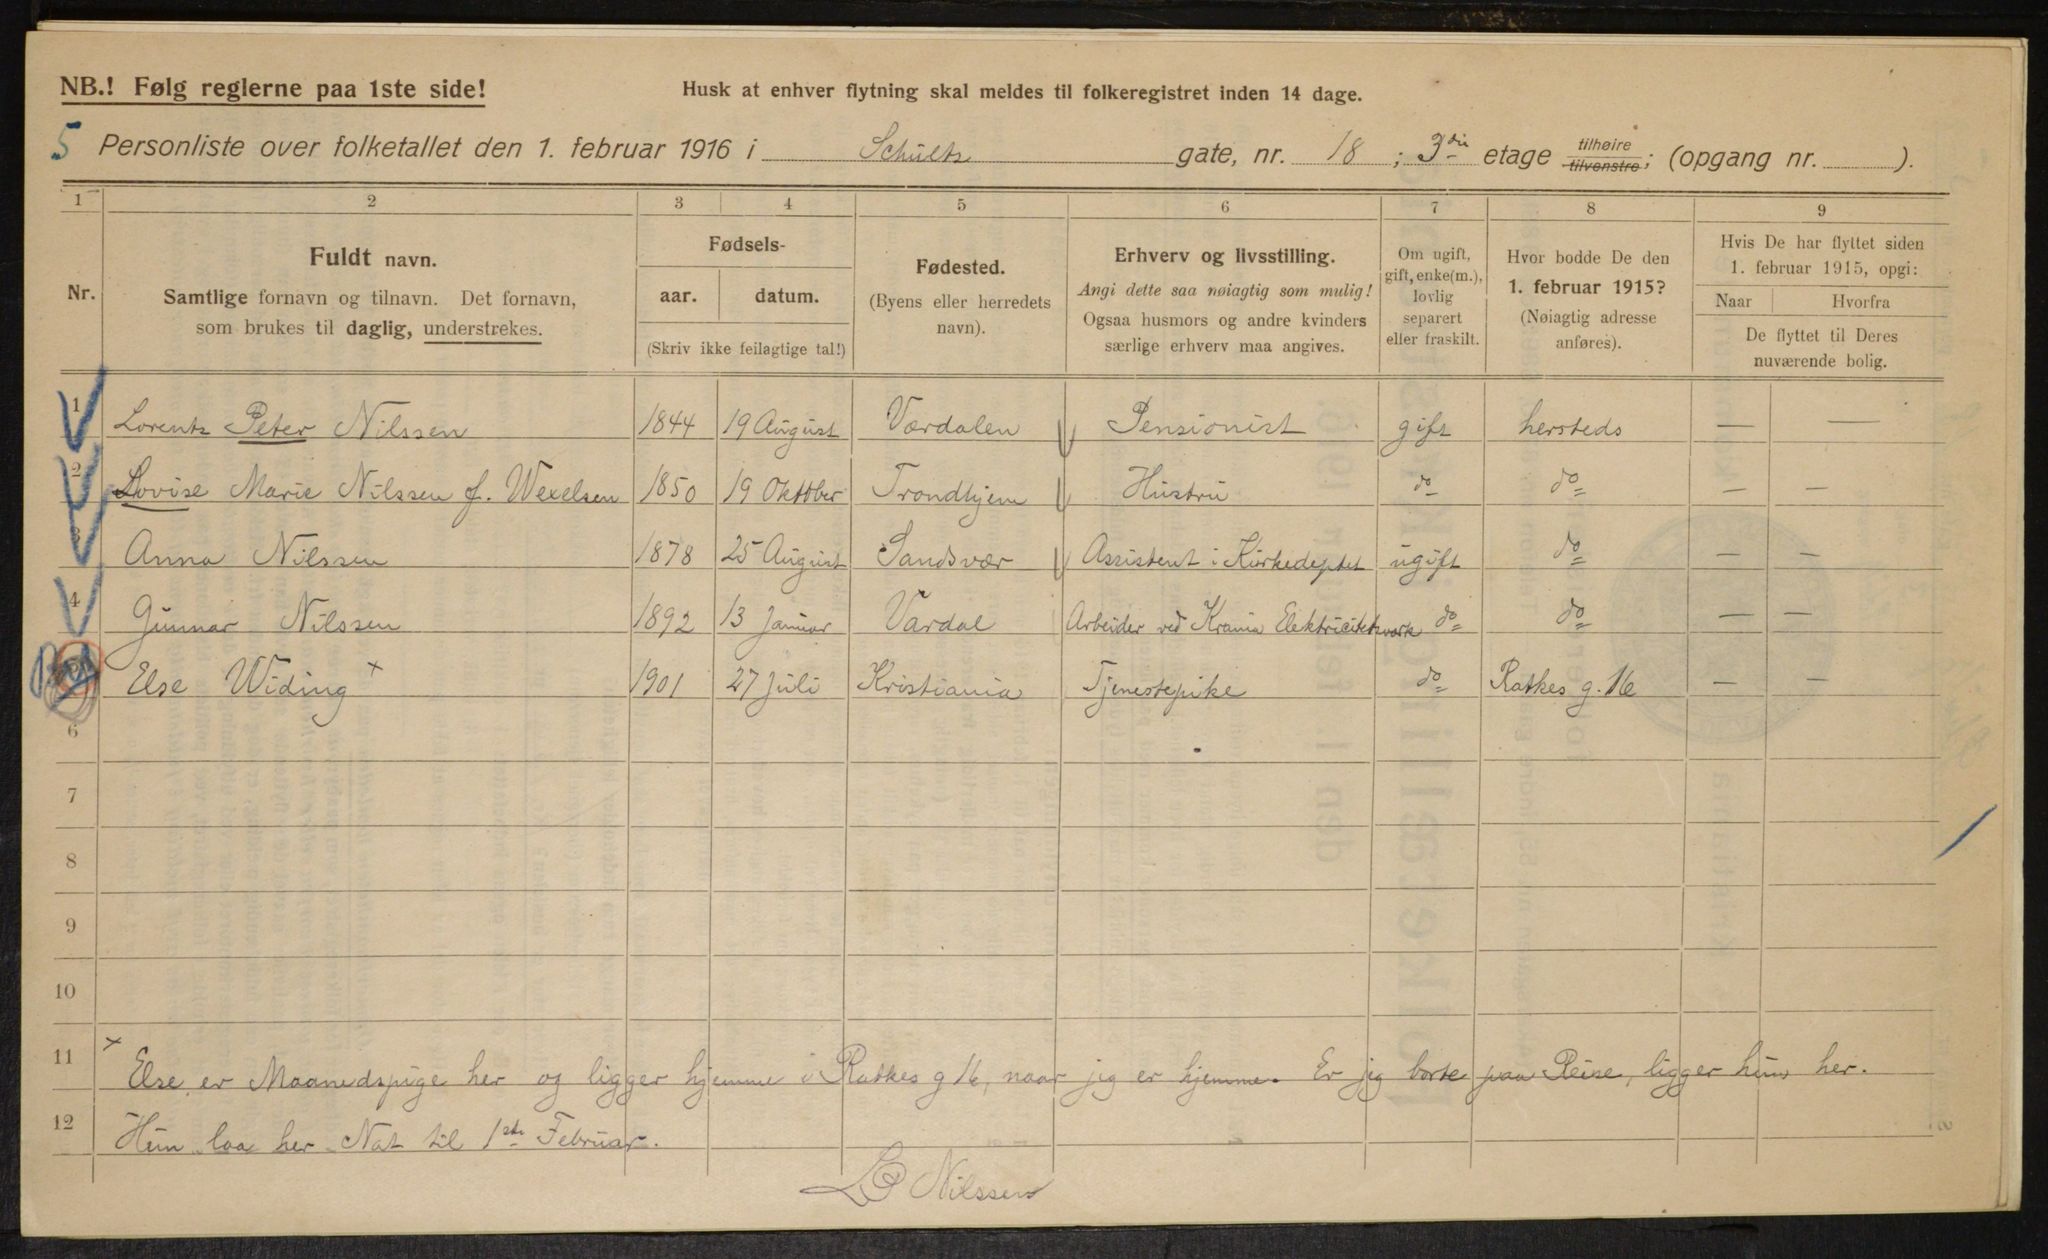 NB.! Følg reglerne paa 1ste side!
Husk at enhver flytning skal meldes til folkeregistret inden 14 dage.
5 Personliste over folketallet den 1. februar 1916 i Schultz gate, nr. 18 ; 3die etage tilhøire tilvenstre; (opgang nr. ).
1 2 3 4 5 6 7 8 9
Nr.
Fuldt navn.
Samtlige fornavn og tilnavn. Det fornavn,
som brukes til daglig, understrekes.
Fødsels-
aar. datum.
(Skriv ikke feilagtige tal!)
Fødested.
(Byens eller herredets
navn).
Erhverv og livsstilling.
Angi dette saa nøiagtig som mulig!
Ogsaa husmors og andre kvinders
særlige erhverv maa angives.
Om ugift,
gift, enke(m.),
lovlig
separert
eller fraskilt.
Hvor bodde De den
1. februar 1915?
(Nøiagtig adresse
anføres).
Hvis De har flyttet siden
1. februar 1915, opgi:
Naar Hvorfra
De flyttet til Deres
nuværende bolig.
1 Lorentz Peter Nilssen 1844 19 August Værdalen Pensionist gift hersteds — —
2 Lovise Marie Nilssen f. Wexelsen 1850 19 Oktober Trondhjem Hustru do do — —
3 Anna Nilssen 1878 25 August Sandsvær Assistent i Kirkedeptet ugift do — —
4 Gunnar Nilssen 1892 13 Januar Vardal Arbeider ved Krania Elektricitetsværk do do — —
Else Widing × 1901 27 Juli Kristiania Tjenestepike do Ratkes g. 16 — —
6
7
8
9
10
11 × Else er Maanedspige her og ligger hjemme i Ratkes g 16, naar jeg er hjemme. Er jeg borte paa Reise, ligger hun her.
12 Hun laa her Nat til 1ste Februar.
L P Nilssen